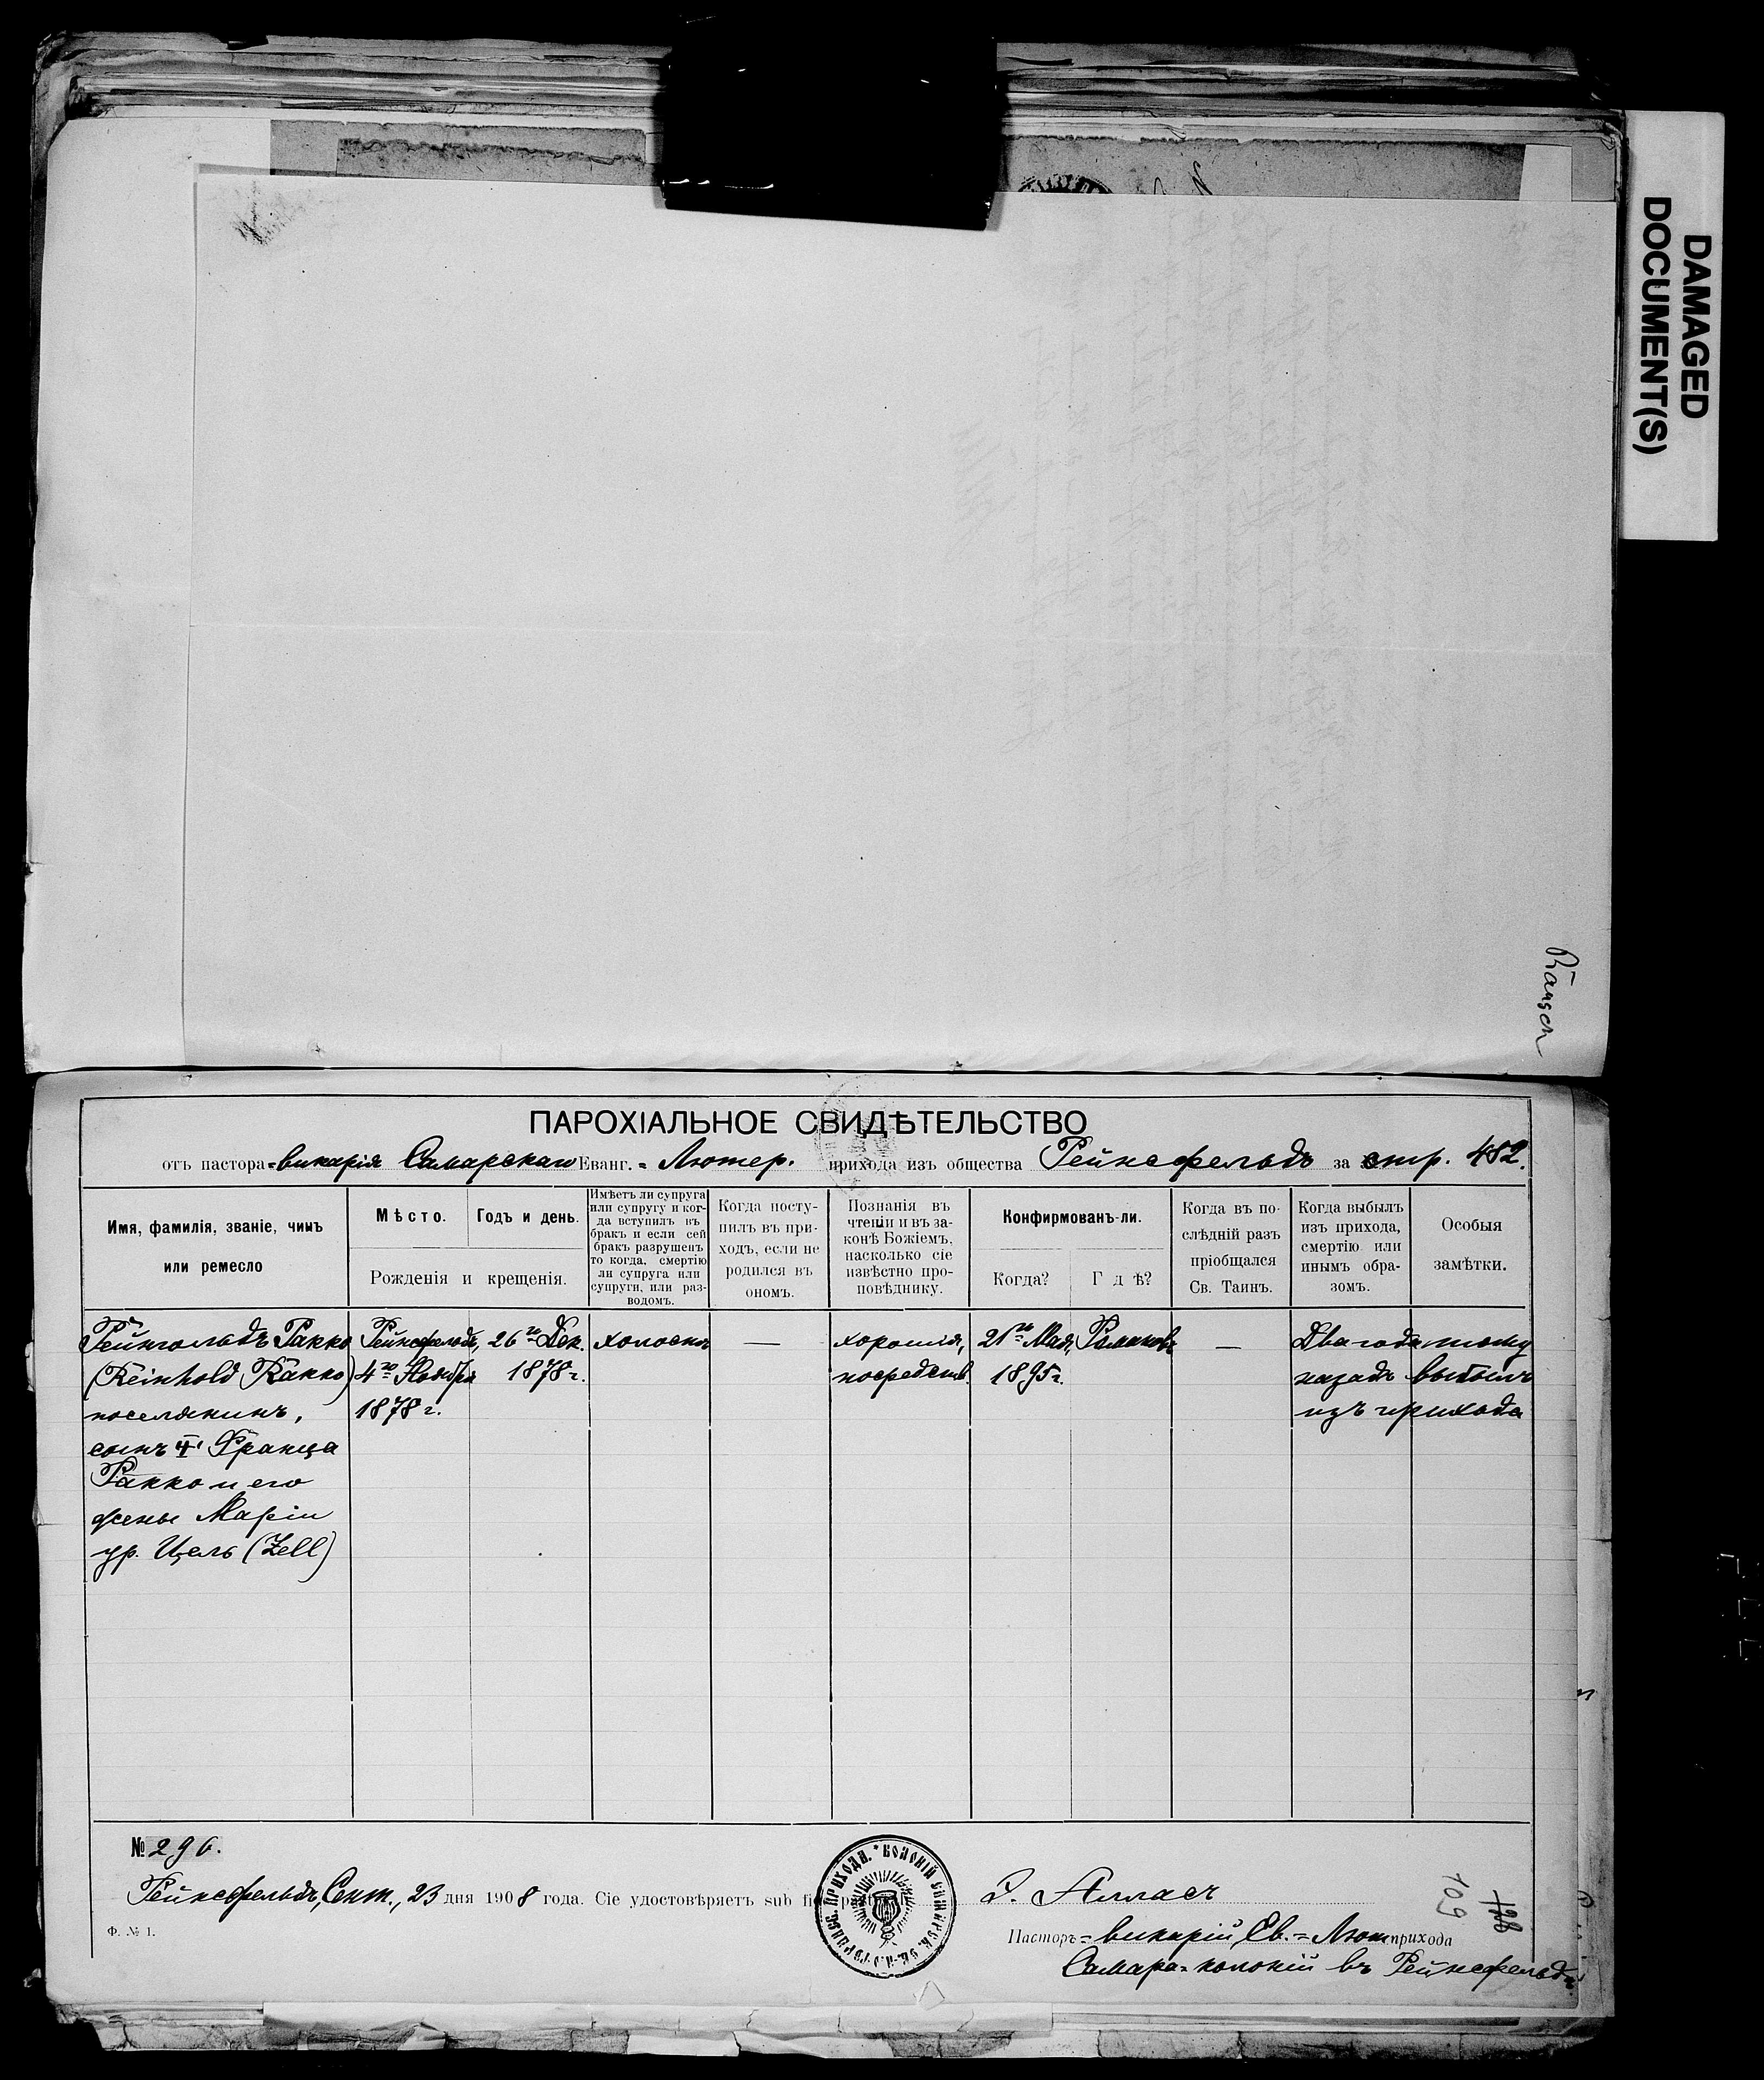 DAMAGED
DOCUMENT(S)
ПАРОХІАЛЬНОЕ СВИДѢТЕЛЬСТВО
отъ пастора=викарія Самарскаго Еванг.=Лютер. прихода изъ общества Рейнсфельдъ за стр. 482.
Имя, фамилія, званіе, чинъ
или ремесло
Мѣсто.
Годъ и день.
Рожденія и крещенія.
Имѣетъ ли супруга
или супругу и ког-
да вступилъ въ
бракъ и если сей
бракъ разрушенъ
то когда, смертію
ли супруга или
супруги, или раз-
водомъ.
Когда посту-
пилъ въ при-
ходъ, если не
родился въ
ономъ.
Познанія въ
чтеніи и въ за-
конѣ Божіемъ,
насколько сіе
извѣстно про-
повѣднику.
Конфирмованъ-ли.
Когда?
Гдѣ?
Когда въ по-
слѣдній разъ
пріобщался
Св. Таинъ.
Когда выбылъ
изъ прихода,
смертію или
инымъ обра-
зомъ.
Особыя
замѣтки.
Рейнгольдъ Ракко
(Reinhold Rakko)
поселянинъ,
сынъ Франца
Ракко и его
жены Маріи
ур. Цель (Zell)
Рейнсфельдъ,
4го Ноября
1878 г.
26го Дек.
1878 г.
холостъ
—
хорошія,
посредств.
21го Мая,
1895 г.
—
Два года тому
назадъ выбылъ
изъ прихода
№ 296.
Рейнсфельдъ, Сент., 23 дня 1908 года. Сіе удостовѣряетъ sub
Ф. № 1.
Пасторъ=викарій Ев.=Лют. прихода
Самаро=колоній въ Рейнсфельдѣ
128
109